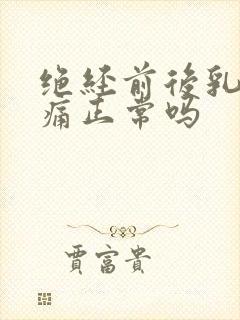 绝经前後乳
痛正常吗
贾富贵